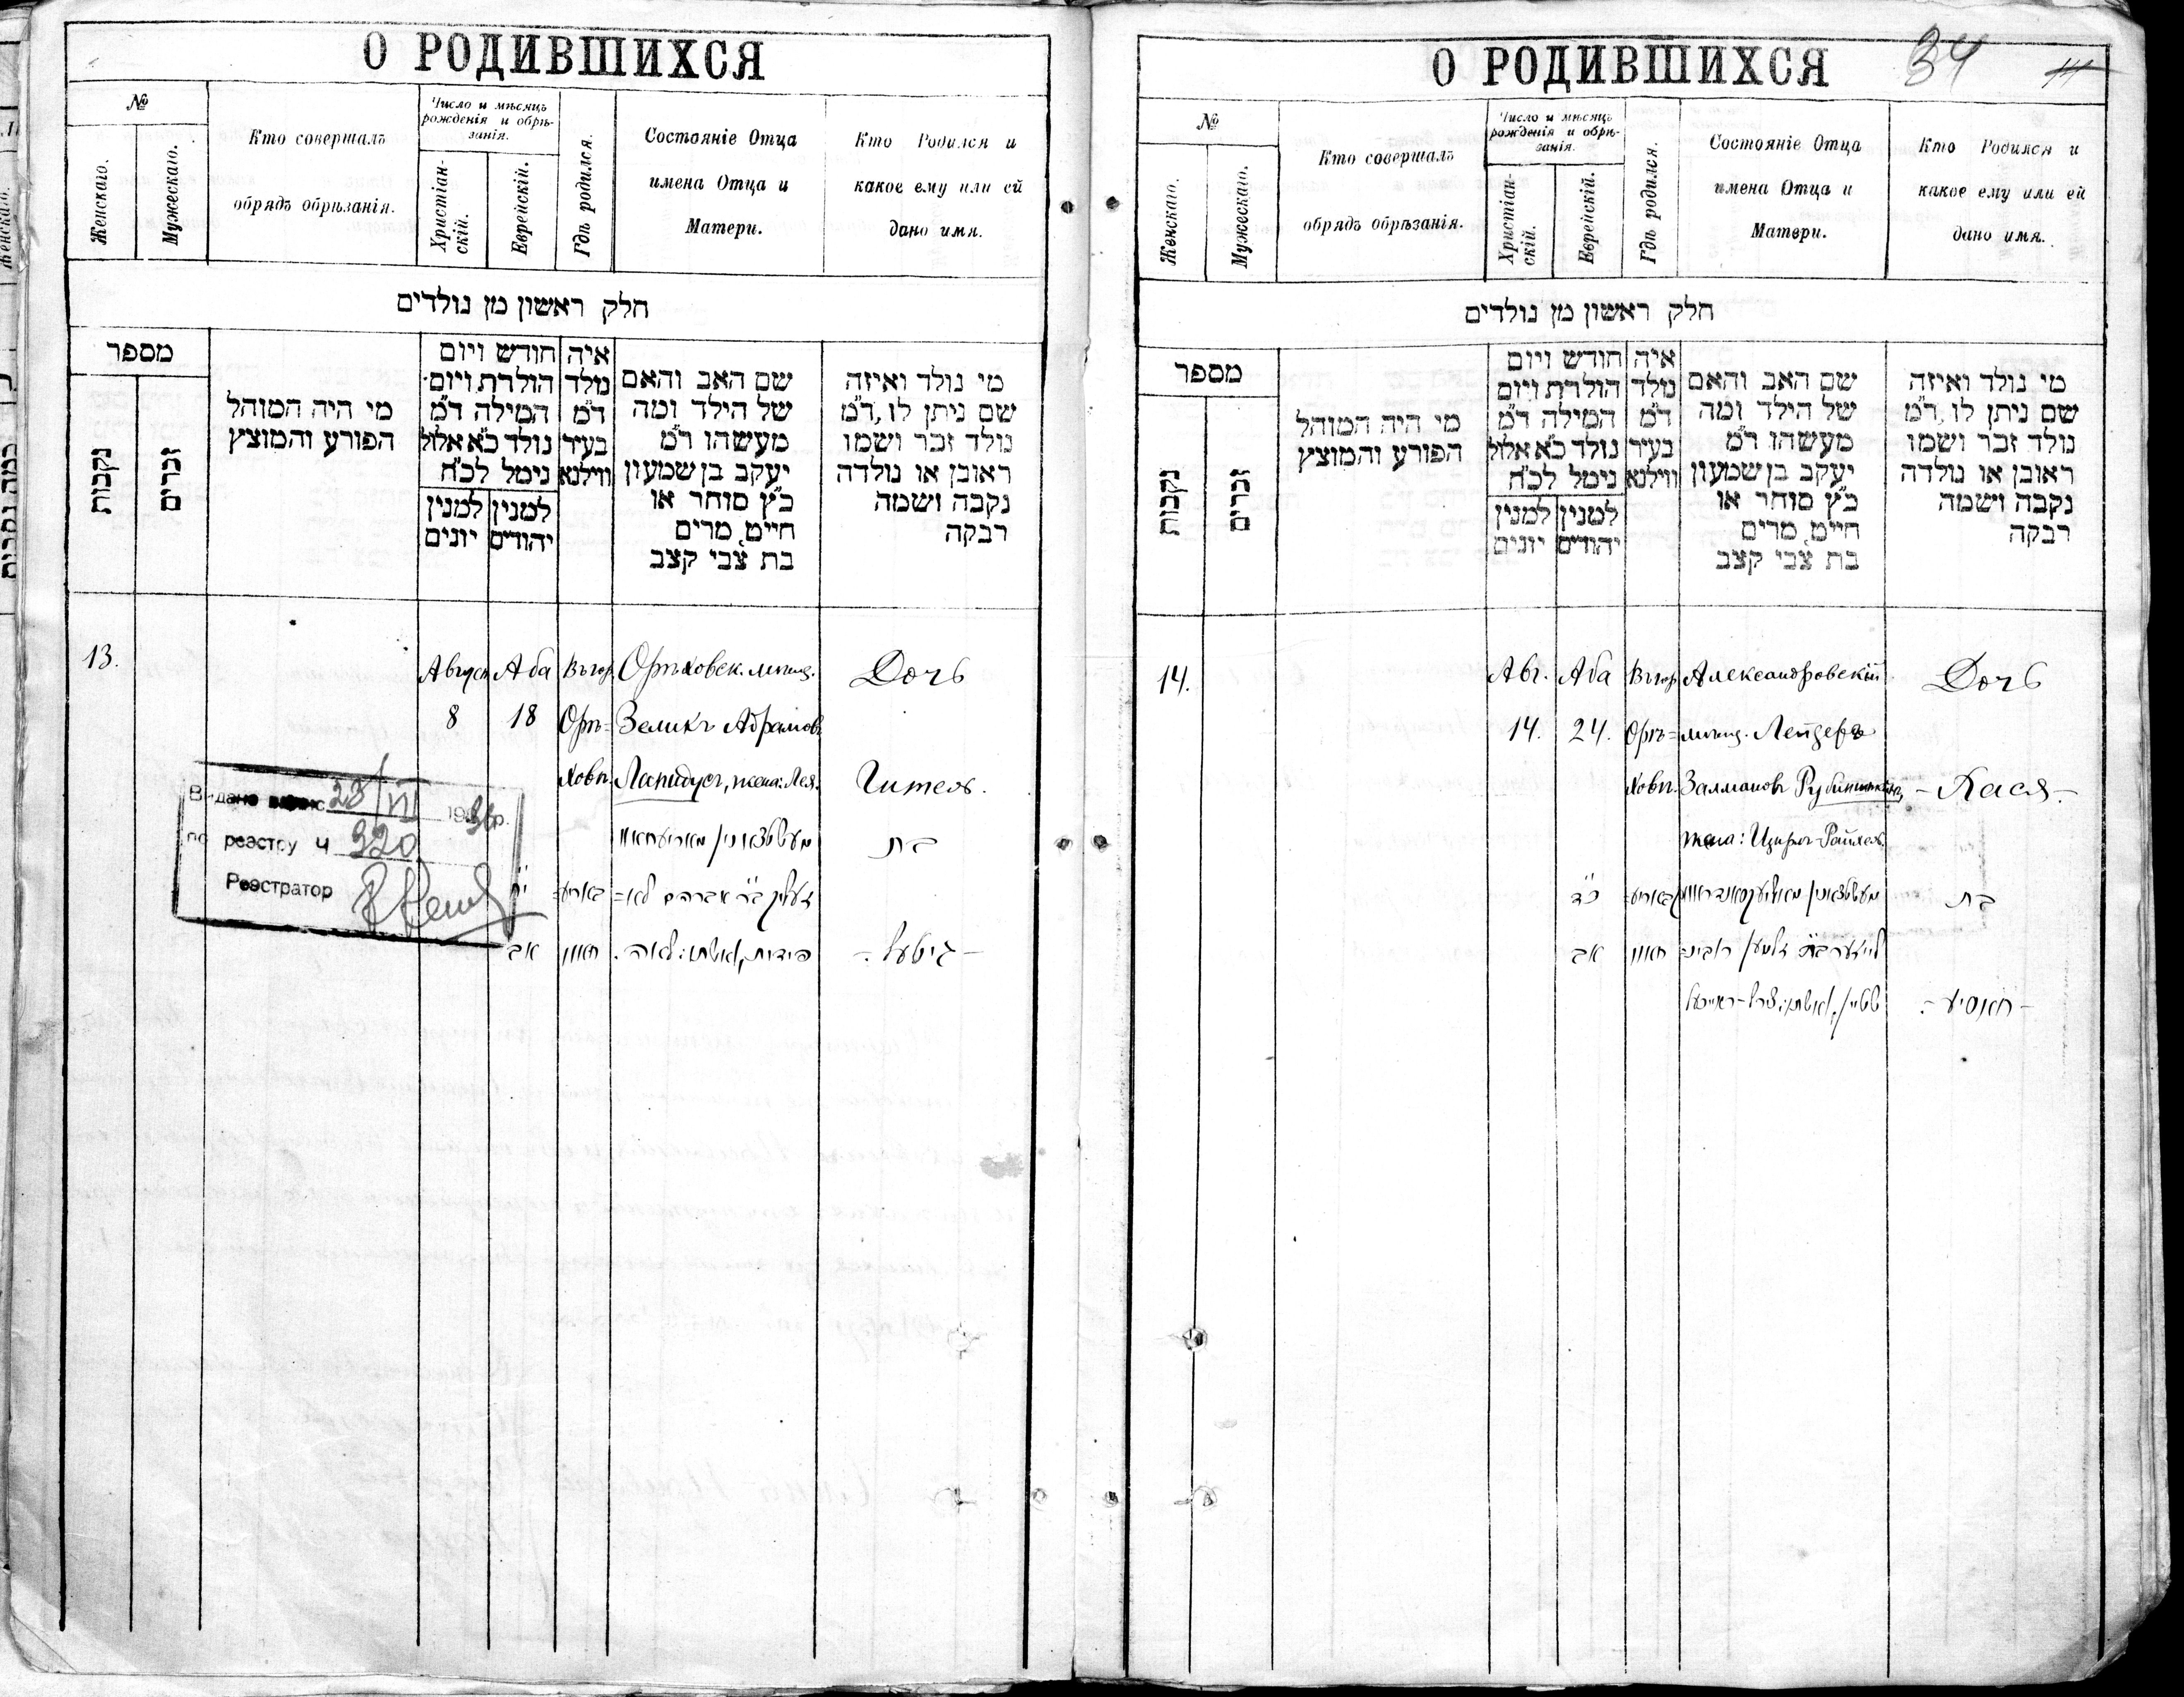 О РОДИВШИХСЯ
№
Женскаго.
Мужескаго.
Кто совершалъ
обрядъ обрѣзанія.
Число и мѣсяцъ
рожденія и обрѣ-
занія.
Христіан-
скій.
Еврейскій.
Гдѣ родился.
Состояніе Отца
имена Отца и
Матери.
Кто Родился и
какое ему или ей
дано имя.
חלק ראשון מן נולדים
מספר
נקבות
זכרים
מי היה המוהל
הפורע והמוצץ
חודש ויום
הולדת ויום
המילה ד״מ
נולד כ״א אלול
נימל לכ״ח
למנין
יהודים
למנין
יונים
איה
נולד
ד״מ
בעיר
ווילנא
שם האב והאם
של הילד ומה
מעשהו ד״מ
יעקב בן שמעון
כ״ץ סוחר או
חייט, מרים
בת צבי קצב
מי נולד ואיזה
שם ניתן לו, ד״מ
נולד זכר ושמו
ראובן או נולדה
נקבה ושמה
רבקה
13.
Август
8
Аба
18
Въ гор.
Орѣ=
ховѣ.
Орѣховск. мѣщ.
Зеликъ Абрамов
Лапидус, жена: Лея.
Дочь
Гитель.
י״ח
אב
בת
- גיטעל -
Видано
28/VI 1936р.
по реэстру ч 320
Реэстратор
О РОДИВШИХСЯ
34
№
Женскаго.
Мужескаго.
Кто совершалъ
обрядъ обрѣзанія.
Число и мѣсяцъ
рожденія и обрѣ-
занія.
Христіан-
скій.
Еврейскій.
Гдѣ родился.
Состояніе Отца
имена Отца и
Матери.
Кто Родился и
какое ему или ей
дано имя.
חלק ראשון מן נולדים
מספר
נקבות
זכרים
מי היה המוהל
הפורע והמוצץ
חודש ויום
הולדת ויום
המילה ד״מ
נולד כ״א אלול
נימל לכ״ח
למנין
יהודים
למנין
יונים
איה
נולד
ד״מ
בעיר
ווילנא
שם האב והאם
של הילד ומה
מעשהו ד״מ
יעקב בן שמעון
כ״ץ סוחר או
חייט, מרים
בת צבי קצב
מי נולד ואיזה
שם ניתן לו, ד״מ
נולד זכר ושמו
ראובן או נולדה
נקבה ושמה
רבקה
14.
Авг.
14.
Аба
24.
Въ гор.
Орѣ=
ховѣ.
Александровскій
мѣщ. Лейзеръ
Залманов
жена: Цирль-Райхель
Дочь
- Хася -
כ״ד
אב
בת
- חאסיע -